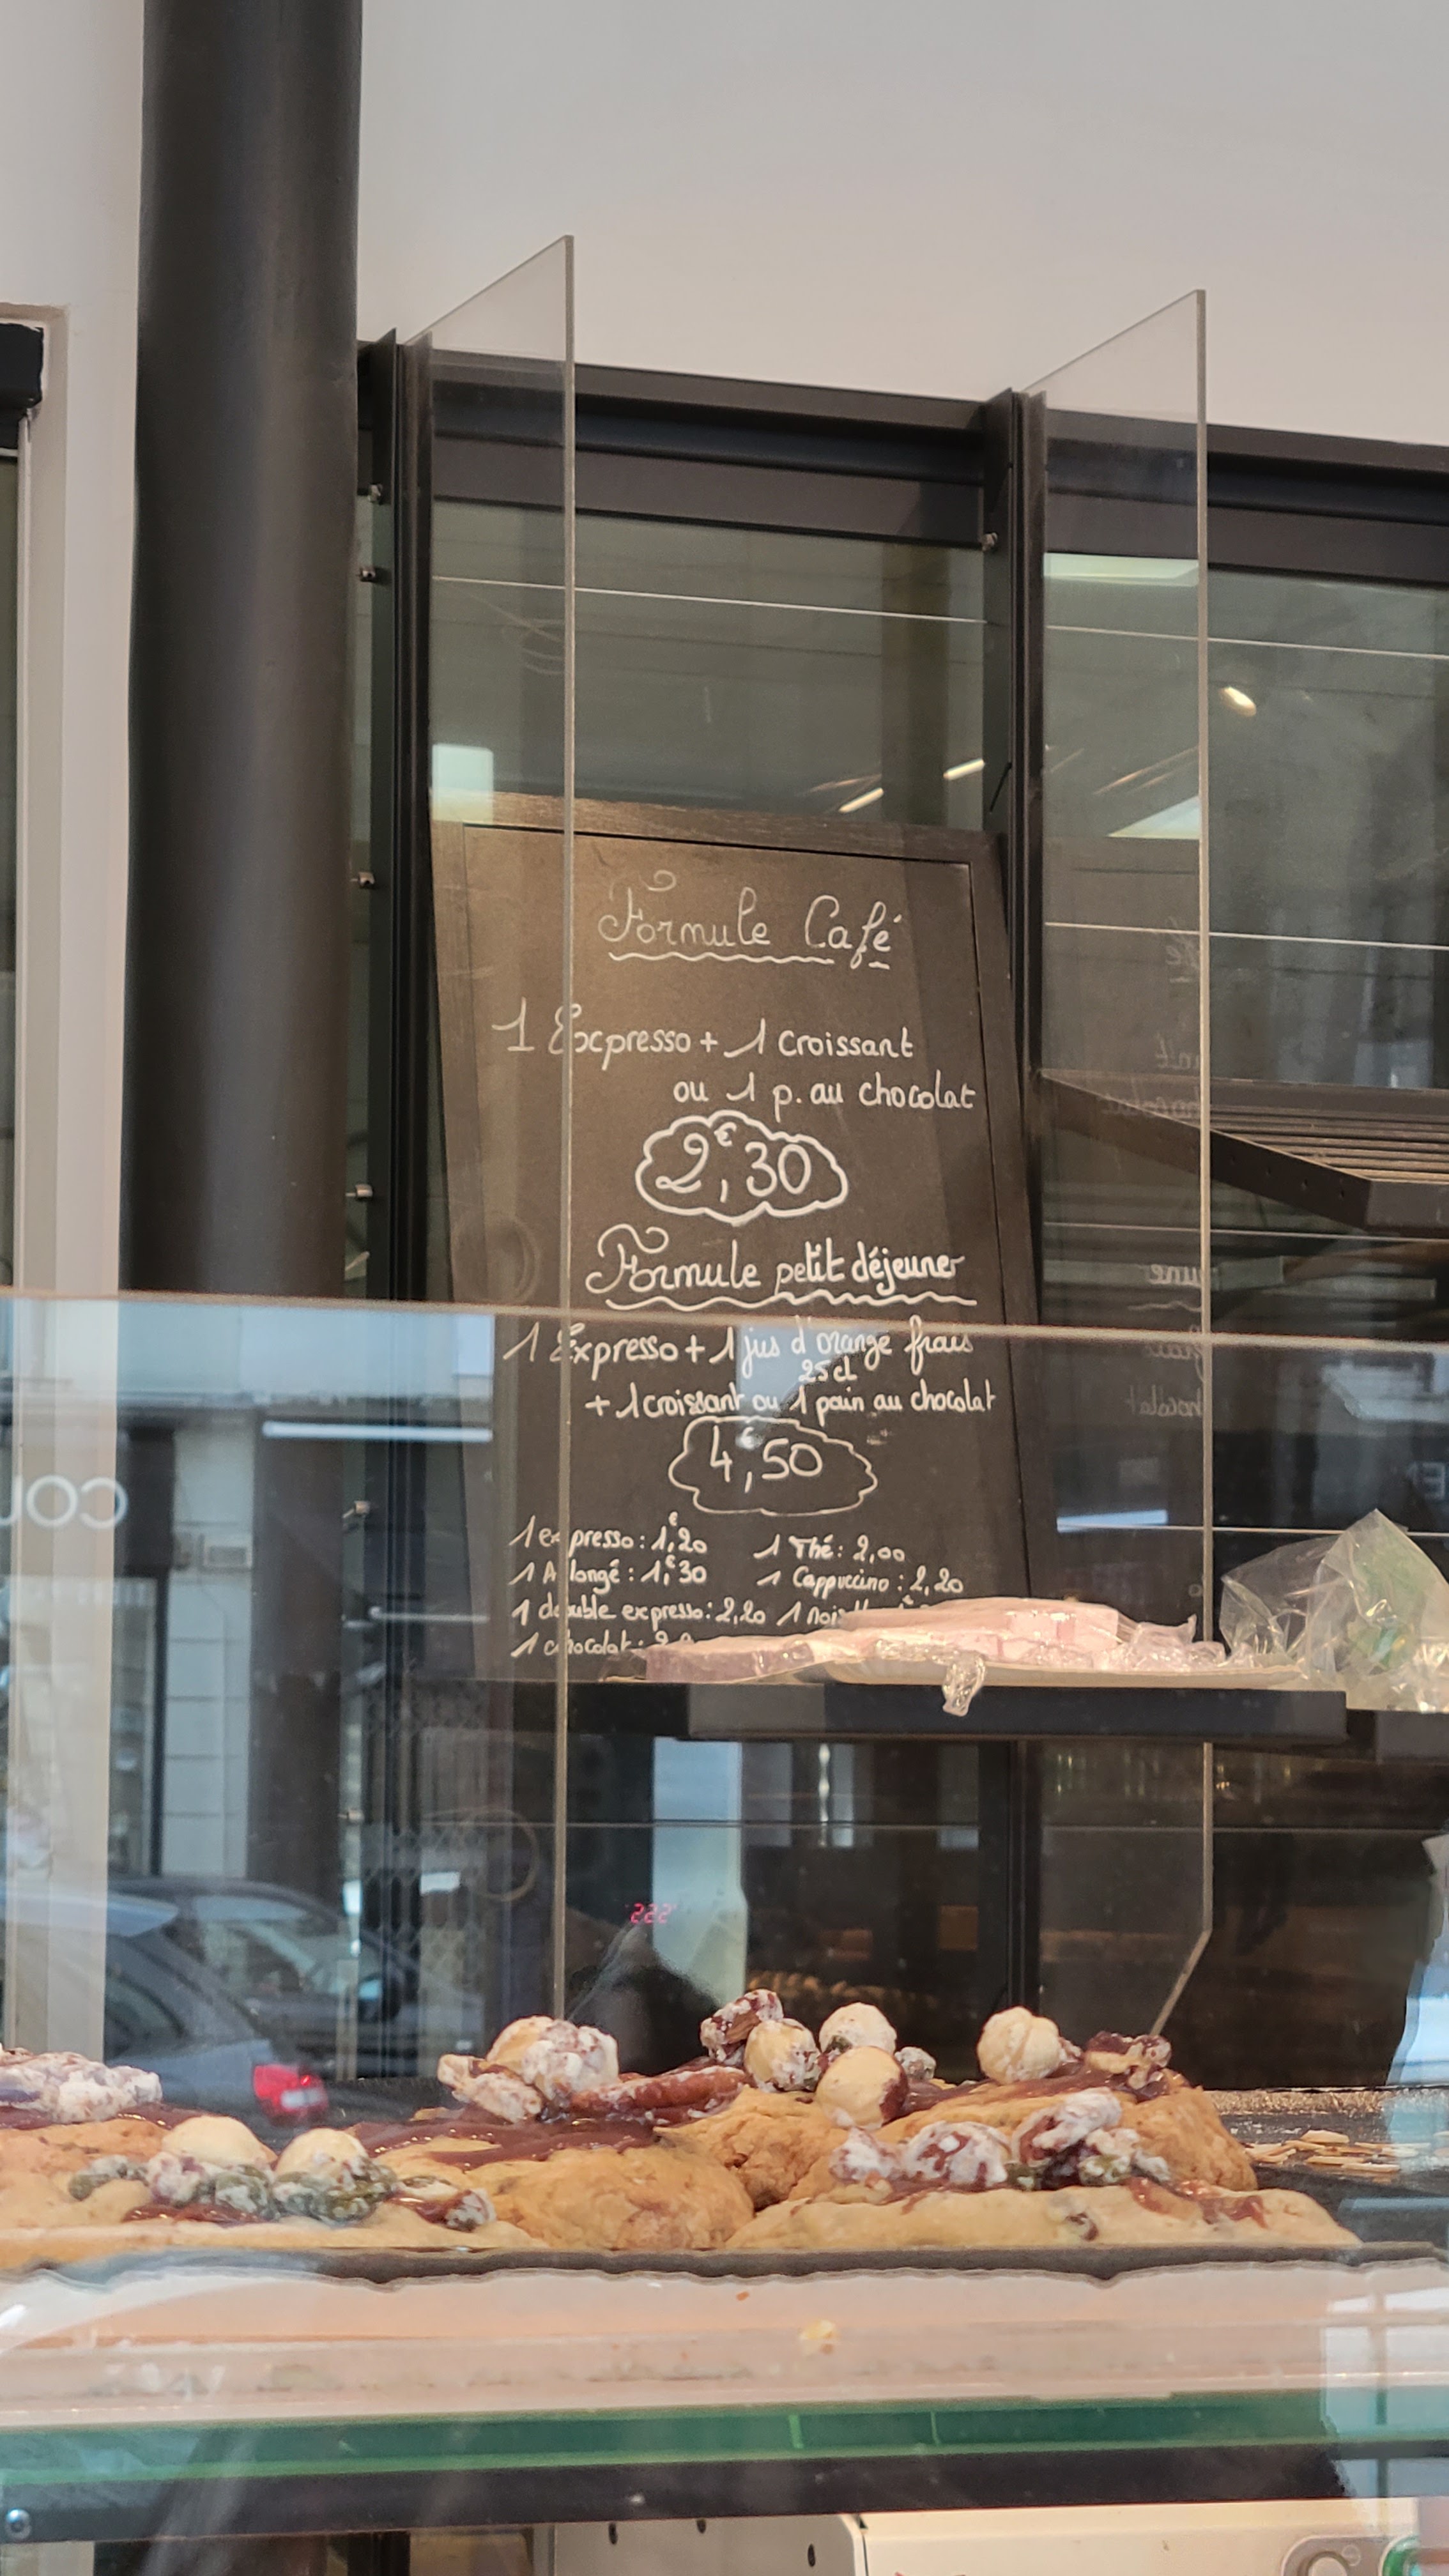 Formule Café
1 Expresso + 1 croissant
ou 1 p. au chocolat
2€,30
Formule petit déjeuner
1 Expresso + 1 jus d'orange frais
25cl
+ 1 croissant ou 1 pain au chocolat
4€,50
1 expresso : 1€,20 1 Thé : 2,00
1 Alongé : 1€,30 1 Cappuccino : 2,20
1 double expresso : 2,20 1
1 chocolat :
222